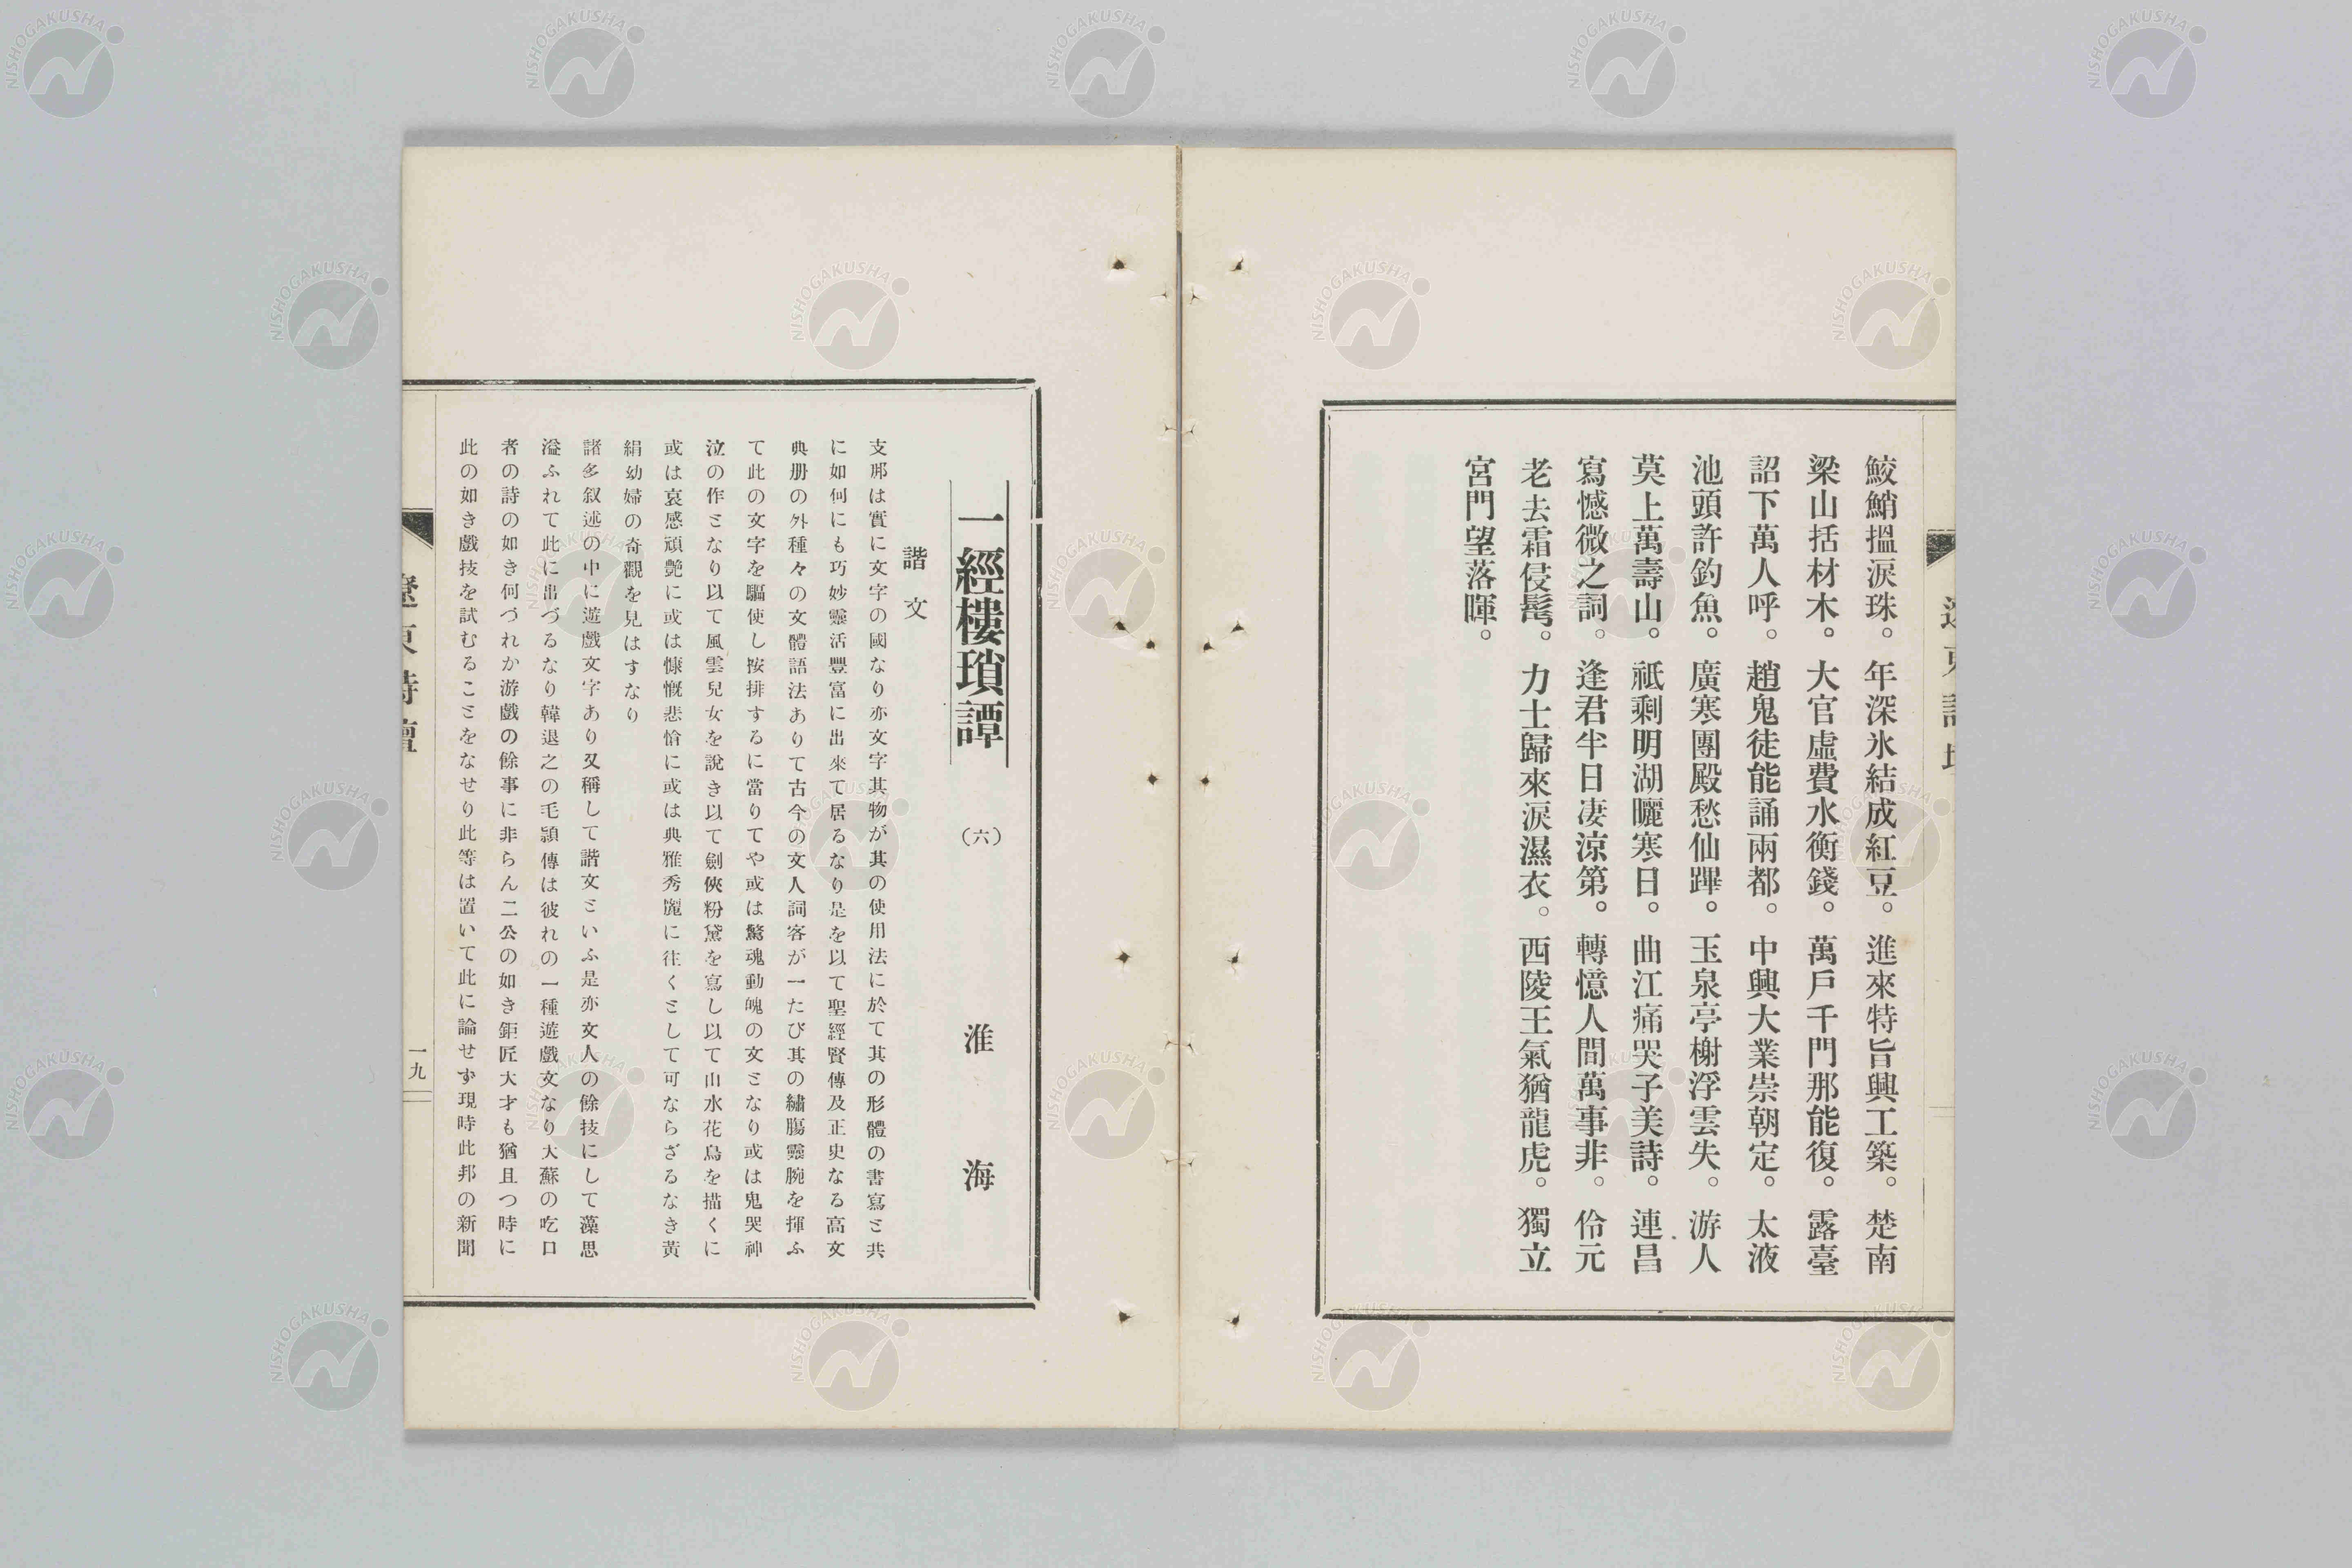 鮫鮹搵淚珠。年深氷結成紅豆。進來特旨興工築。楚南
梁山括材木。大官虛費水衡錢。萬戶千門那能復。露臺
詔下萬人呼。趙鬼徒能誦兩都。中興大業崇朝定。太液
池頭許釣魚。廣寒團殿愁仙蹕。玉泉亭榭浮雲失。游人
莫上萬壽山。祗剩明湖曬寒日。曲江痛哭子美詩。連昌
寫憾微之詞。逢君半日凄涼第。轉憶人間萬事非。伶元
老去霜侵髩。力士歸來淚濕衣。西陵王氣猶龍虎。獨立
宮門望落暉。
一經樓瑣譚 (六) 淮海
諧文
支那は實に文字の國なり亦文字其物が其の使用法に於て其の形體の書寫と共
に如何にも巧妙靈活豐富に出來て居るなり是を以て聖經賢傳及正史なる高文
典册の外種々の文體語法ありて古今の文人詞客が一たび其の繡膓靈腕を揮ふ
て此の文字を驅使し按排するに當りてや或は驚魂動魄の文となり或は鬼哭神
泣の作となり以て風雲兒女を說き以て劍俠粉黛を寫し以て山水花鳥を描くに
或は哀感頑艷に或は慷慨悲愴に或は典雅秀麗に往くとして可ならざるなき黃
絹幼婦の奇觀を見はすなり
諸多叙述の中に遊戲文字あり又稱して諧文といふ是亦文人の餘技にして藻思
溢ふれて此に出づるなり韓退之の毛頴傳は彼れの一種遊戲文なり大蘇の吃口
者の詩の如き何づれか游戲の餘事に非らん二公の如き鉅匠大才も猶且つ時に
此の如き戲技を試むることをなせり此等は置いて此に論せず現時此邦の新聞
遼東詩壇
一九
NISHOGAKUSHA